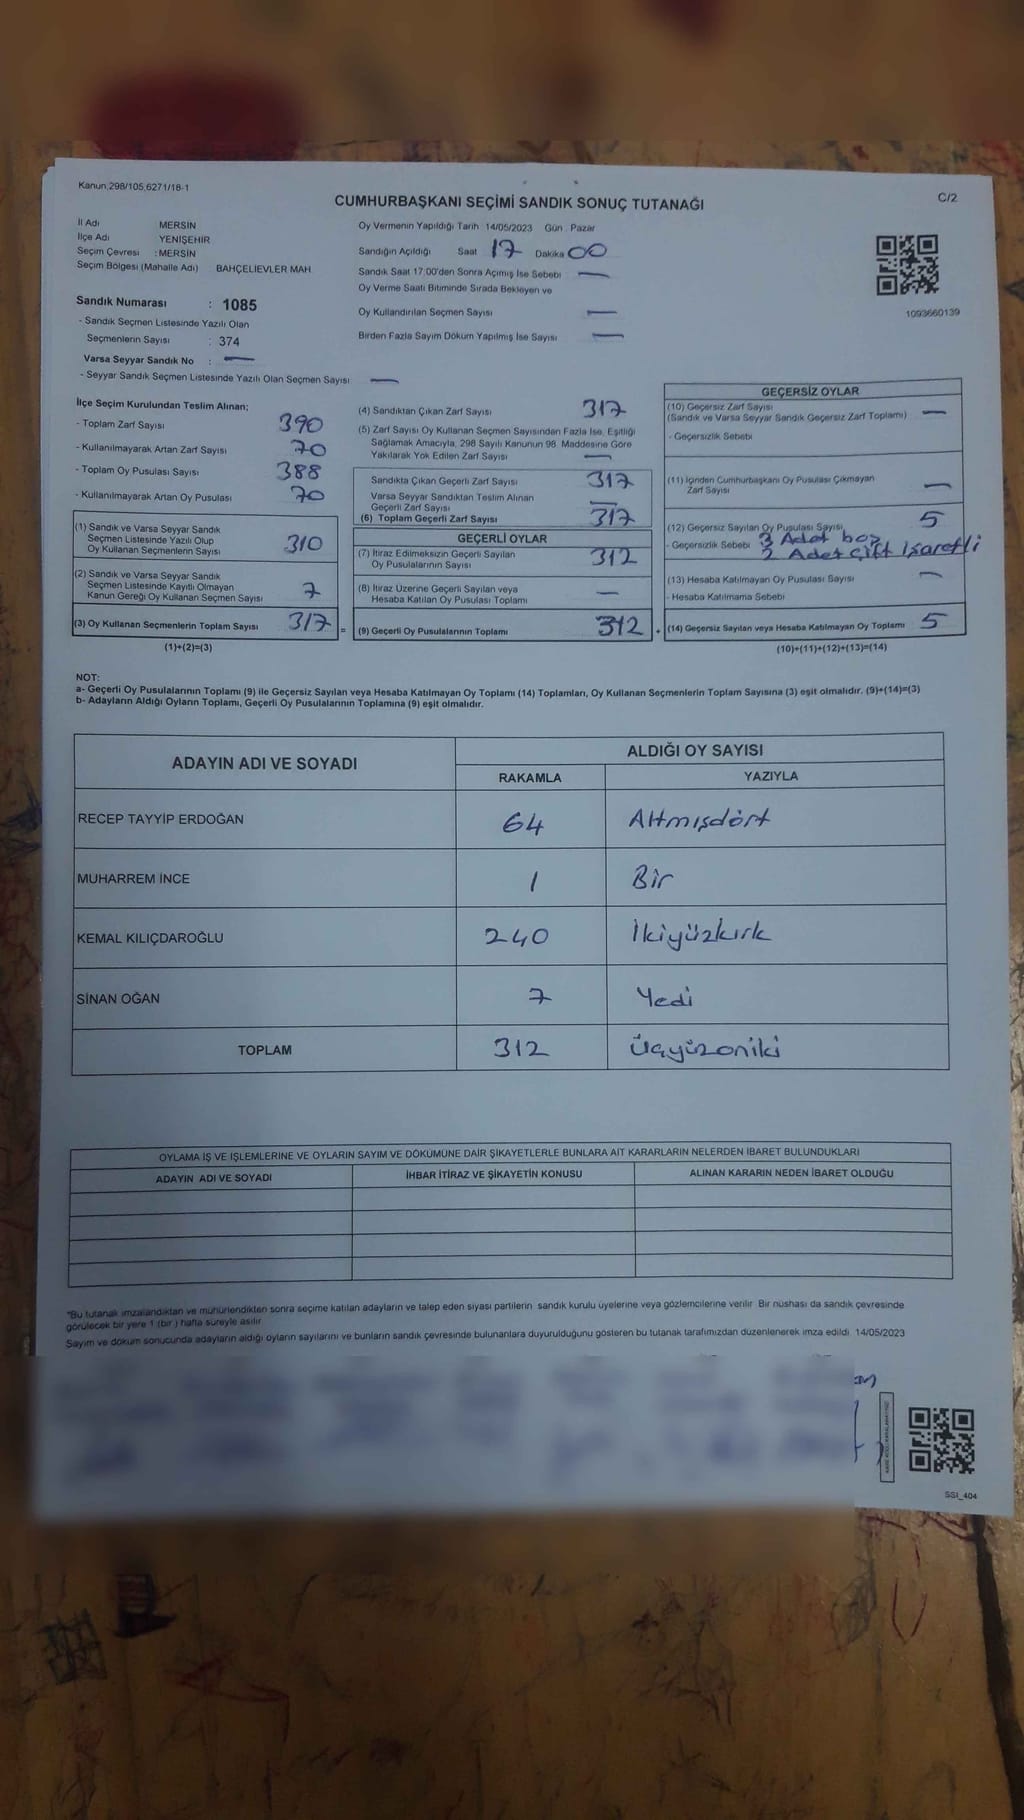 Kanun,298/105,6271/18-1
C/2
CUMHURBAŞKANI SEÇİMİ SANDIK SONUÇ TUTANAĞI
İl Adı MERSİN
İlçe Adı YENİŞEHİR
Seçim Çevresi : MERSİN
Seçim Bölgesi (Mahalle Adı) BAHÇELİEVLER MAH
Sandık Numarası : 1085
- Sandık Seçmen Listesinde Yazılı Olan
Seçmenlerin Sayısı : 374
Varsa Seyyar Sandık No : —
- Seyyar Sandık Seçmen Listesinde Yazılı Olan Seçmen Sayısı —
Oy Vermenin Yapıldığı Tarih 14/05/2023 Gün Pazar
Sandığın Açıldığı Saat 17 Dakika 00
Sandık Saat 17:00'den Sonra Açımış İse Sebebi —
Oy Verme Saati Bitiminde Sırada Bekleyen ve
Oy Kullandırılan Seçmen Sayısı —
Birden Fazla Sayım Döküm Yapılmış İse Sayısı —
1093660139
İlçe Seçim Kurulundan Teslim Alınan;
- Toplam Zarf Sayısı 390
- Kullanılmayarak Artan Zarf Sayısı 70
- Toplam Oy Pusulası Sayısı 388
- Kullanılmayarak Artan Oy Pusulası 70
(1) Sandık ve Varsa Seyyar Sandık
Seçmen Listesinde Yazılı Olup
Oy Kullanan Seçmenlerin Sayısı 310
(2) Sandık ve Varsa Seyyar Sandık
Seçmen Listesinde Kayıtlı Olmayan
Kanun Gereği Oy Kullanan Seçmen Sayısı 7
(3) Oy Kullanan Seçmenlerin Toplam Sayısı 317 =
(1)+(2)=(3)
(4) Sandıktan Çıkan Zarf Sayısı 317
(5) Zarf Sayısı Oy Kullanan Seçmen Sayısından Fazla İse, Eşitliği
Sağlamak Amacıyla, 298 Sayılı Kanunun 98. Maddesine Göre
Yakılarak Yok Edilen Zarf Sayısı —
Sandıkta Çıkan Geçerli Zarf Sayısı 317
Varsa Seyyar Sandıktan Teslim Alınan
Geçerli Zarf Sayısı —
(6) Toplam Geçerli Zarf Sayısı 317
GEÇERLİ OYLAR
(7) İtiraz Edilmeksizin Geçerli Sayılan
Oy Pusulalarının Sayısı 312
(8) İtiraz Üzerine Geçerli Sayılan veya
Hesaba Katılan Oy Pusulası Toplamı —
(9) Geçerli Oy Pusulalarının Toplamı 312 +
GEÇERSİZ OYLAR
(10) Geçersiz Zarf Sayısı
(Sandık ve Varsa Seyyar Sandık Geçersiz Zarf Toplamı) —
- Geçersizlik Sebebi
(11) İçinden Cumhurbaşkanı Oy Pusulası Çıkmayan
Zarf Sayısı —
(12) Geçersiz Sayılan Oy Pusulası Sayısı 5
- Geçersizlik Sebebi 3 Adet boş
2 Adet Çift İşaretli
(13) Hesaba Katılmayan Oy Pusulası Sayısı —
- Hesaba Katılmama Sebebi
(14) Geçersiz Sayılan veya Hesaba Katılmayan Oy Toplamı 5
(10)+(11)+(12)+(13)=(14)
NOT:
a- Geçerli Oy Pusulalarının Toplamı (9) ile Geçersiz Sayılan veya Hesaba Katılmayan Oy Toplamı (14) Toplamları, Oy Kullanan Seçmenlerin Toplam Sayısına (3) eşit olmalıdır. (9)+(14)=(3)
b- Adayların Aldığı Oyların Toplamı, Geçerli Oy Pusulalarının Toplamına (9) eşit olmalıdır.
ADAYIN ADI VE SOYADI ALDIĞI OY SAYISI
RAKAMLA YAZIYLA
RECEP TAYYİP ERDOĞAN 64 Altmışdört
MUHARREM İNCE 1 Bir
KEMAL KILIÇDAROĞLU 240 İkiyüzkırk
SİNAN OĞAN 7 Yedi
TOPLAM 312 Üçyüzoniki
OYLAMA İŞ VE İŞLEMLERİNE VE OYLARIN SAYIM VE DÖKÜMÜNE DAİR ŞİKAYETLERLE BUNLARA AİT KARARLARIN NELERDEN İBARET BULUNDUKLARI
ADAYIN ADI VE SOYADI İHBAR İTİRAZ VE ŞİKAYETİN KONUSU ALINAN KARARIN NEDEN İBARET OLDUĞU
*Bu tutanak imzalandıktan ve mühürlendikten sonra seçime katılan adayların ve talep eden siyasi partilerin sandık kurulu üyelerine veya gözlemcilerine verilir. Bir nüshası da sandık çevresinde
görülecek bir yere 1 (bir ) hafta süreyle asılır
Sayım ve döküm sonucunda adayların aldığı oyların sayılarını ve bunların sandık çevresinde bulunanlara duyurulduğunu gösteren bu tutanak tarafımızdan düzenlenerek imza edildi. 14/05/2023
SSI_404